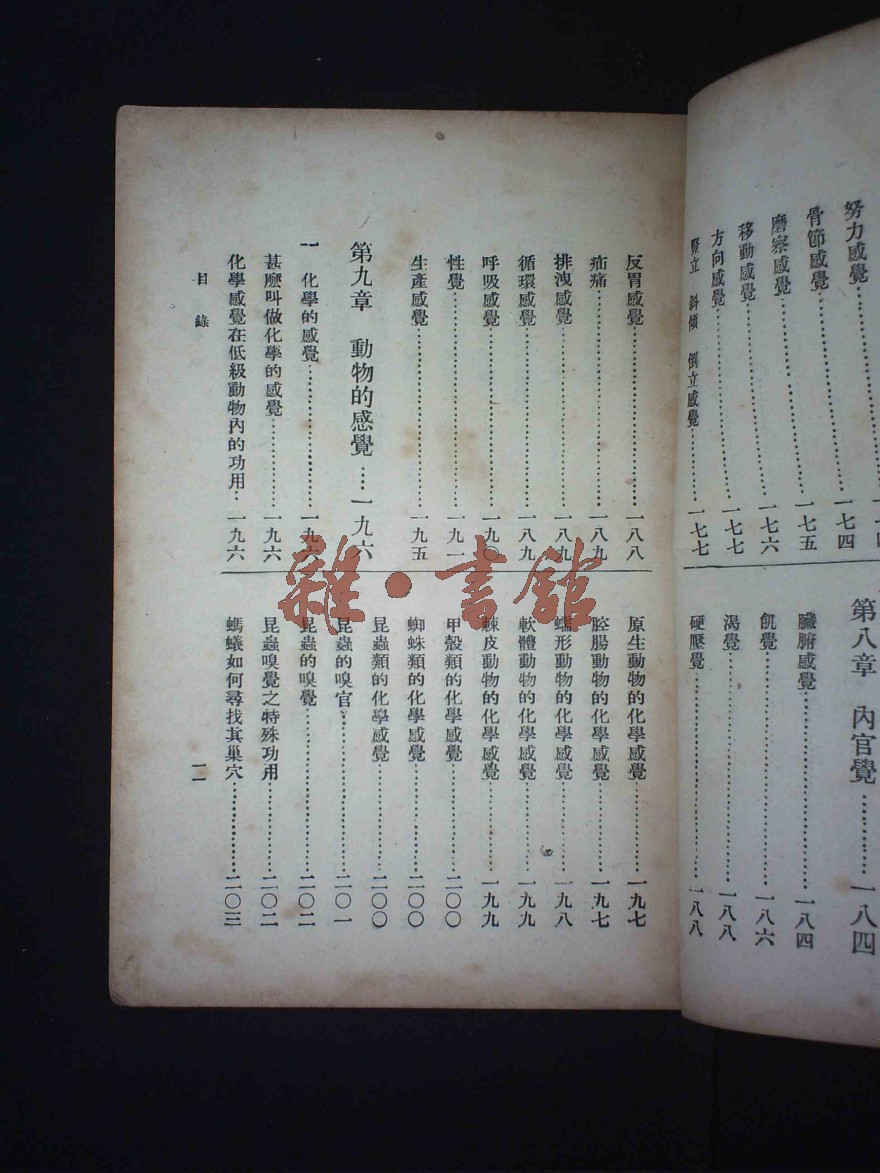 努力感覺
一七四
骨節感覺
一七五
磨察感覺
一七六
移動感覺
一七七
方向感覺
一七七
豎立 斜傾 倒立感覺
一七七
第八章 內官覺
一八四
臟腑感覺
一八四
飢覺
一八六
渴覺
一八八
硬壓覺
一八八
反胃感覺
一八八
疝痛
一八九
排洩感覺
一八九
循環感覺
一八九
呼吸感覺
一九〇
性覺
一九一
生產感覺
一九五
第九章 動物的感覺
一九六
一 化學的感覺
一九六
甚麼叫做化學的感覺
一九六
化學感覺在低級動物內的功用
一九六
原生動物的化學感覺
一九七
腔腸動物的化學感覺
一九七
蠕形動物的化學感覺
一九八
軟體動物的化學感覺
一九九
棘皮動物的化學感覺
一九九
甲殼類的化學感覺
二〇〇
蜘蛛類的化學感覺
二〇〇
昆蟲類的化學感覺
二〇〇
昆蟲的嗅官
二〇一
昆蟲的嗅覺
二〇二
昆蟲嗅覺之特殊功用
二〇二
螞蟻如何尋找其巢穴
二〇三
目錄
一一
雜·書館